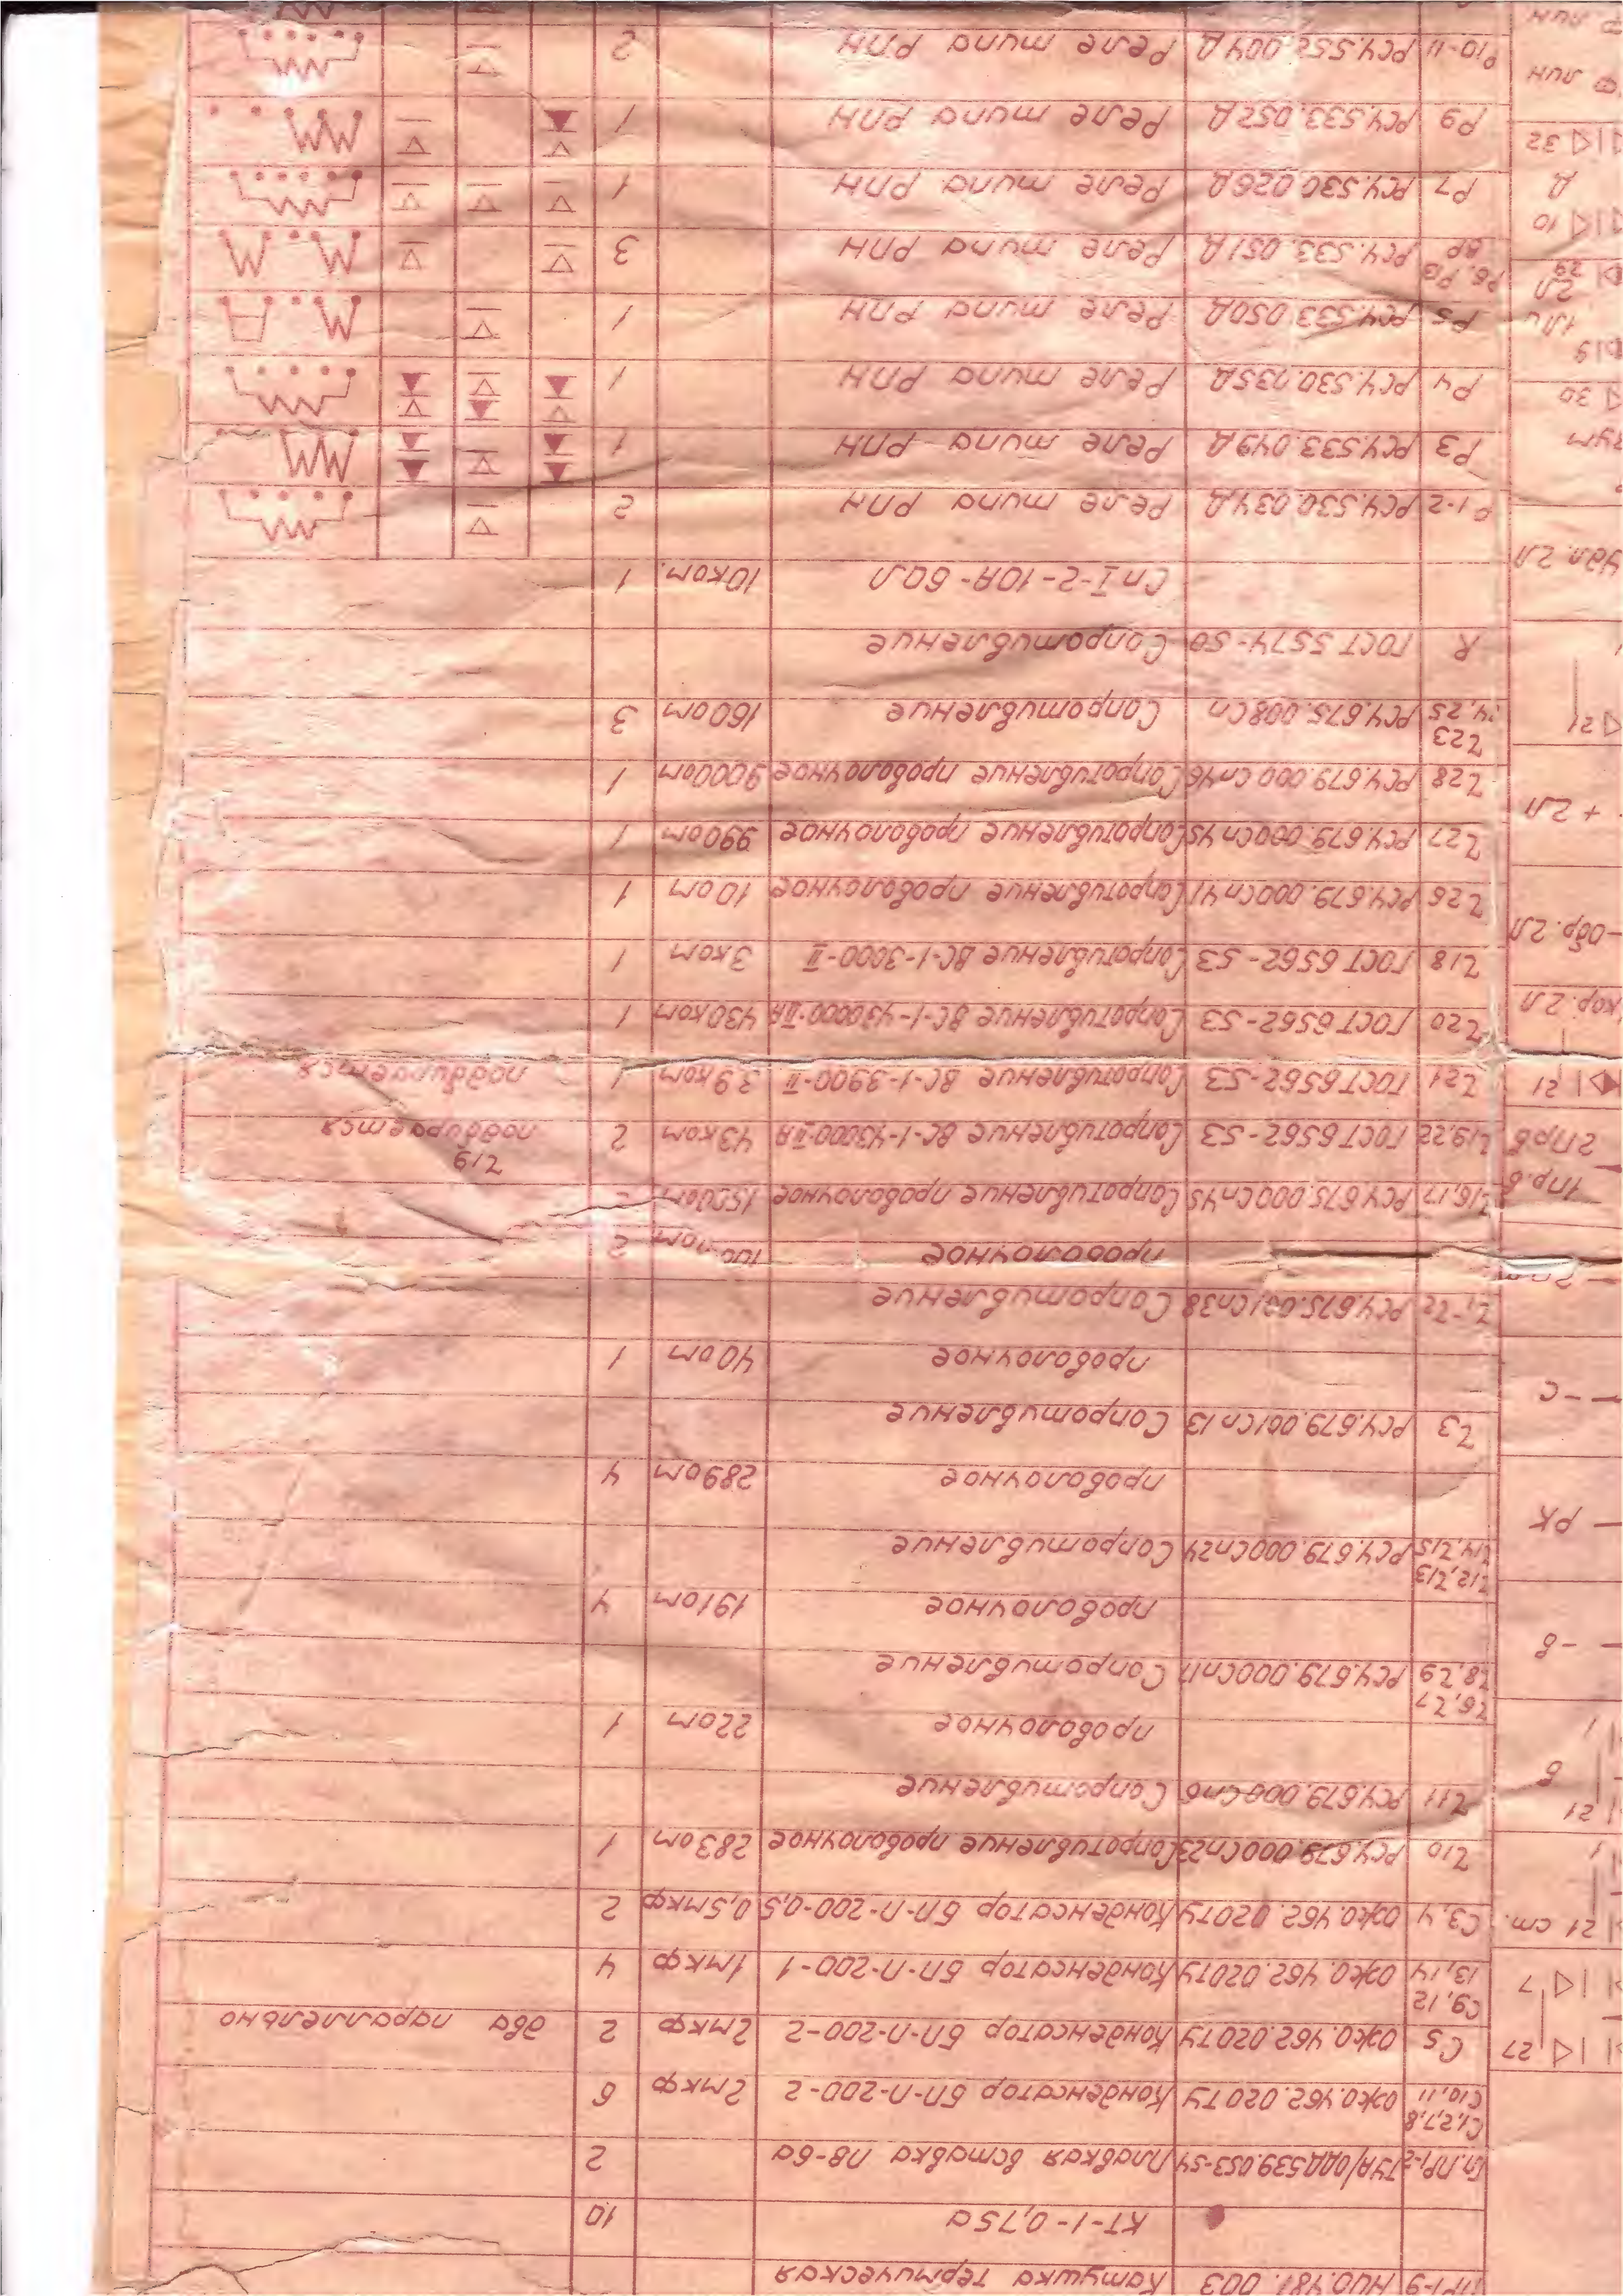 НЮ0.481.003 Катушка термическая
КТ-1-0,75а 10
Плавкая вставка ПВ-6а 2
С1,2,7,8
С10,11 ОЖ0.462.020ТУ Конденсатор БП-П-200-2 2мкф 6
С5 ОЖ0.462.020ТУ Конденсатор БП-П-200-2 2мкф 2 два параллельно
С9,12
13,14 ОЖ0.462.020ТУ Конденсатор БП-П-200-1 1мкф 4
С3,4 ОЖ0.462.020ТУ Конденсатор БП-П-200-0,5 0,5мкф 2
Z10 РСЧ.679.000Сп23 Сопротивление проволочное 283ом 1
Z11 РСЧ.679.000Сп6 Сопротивление
проволочное 22ом 1
Z6,Z7
Z8,Z9 РСЧ.679.000Сп17 Сопротивление
проволочное 191ом 4
Z12,Z13
Z14,Z15 РСЧ.679.000Сп24 Сопротивление
проволочное 289ом 4
Z3 РСЧ.679.001Сп13 Сопротивление
проволочное 40ом 1
Z1-Z2 РСЧ.675.001Сп38 Сопротивление
проволочное 2
Z16,17 РСЧ.675.000Сп45 Сопротивление проволочное 2
Z19
Z19,22 ГОСТ 6562-53 Сопротивление ВС-1-43000-IIА 43ком 2 подбирается
Z21 ГОСТ 6562-53 Сопротивление ВС-1-3900-II 3,9ком 1 подбирается
Z20 ГОСТ 6562-53 Сопротивление ВС-1-430000-IIА 430ком 1
Z18 ГОСТ 6562-53 Сопротивление ВС-1-3000-II 3ком 1
Z26 РСЧ.679.000Сп41 Сопротивление проволочное 10ом 1
Z27 РСЧ.679.000Сп45 Сопротивление проволочное 990ом 1
Z28 РСЧ.679.000Сп46 Сопротивление проволочное 9000ом 1
Z23
24,25 РСЧ.675.008Сп Сопротивление 160ом 3
R ГОСТ 5574-50 Сопротивление
СпI-2-10А-60Л 10ком. 1
Р1-2 РСЧ.530.034Д Реле типа РПН 2
Р3 РСЧ.533.049Д Реле типа РПН 1
Р4 РСЧ.530.735Д Реле типа РПН 1
Р5 РСЧ.533.050Д Реле типа РПН 1
Р6,Р8
ВР РСЧ.533.051Д Реле типа РПН 3
Р7 РСЧ.530.026Д Реле типа РПН 1
Р9 РСЧ.533.052Д Реле типа РПН 1
Р10-11 РСЧ.552.004Д Реле типа РПН 2
27
7
21 ст.
21
б
-в
РК
-с
1пр.в
2прв
21
кор.2Л
-обр.2Л
+2Л
21
удл.2Л
30
19
2Л
29
10
Д
32
ф лин
ф лин